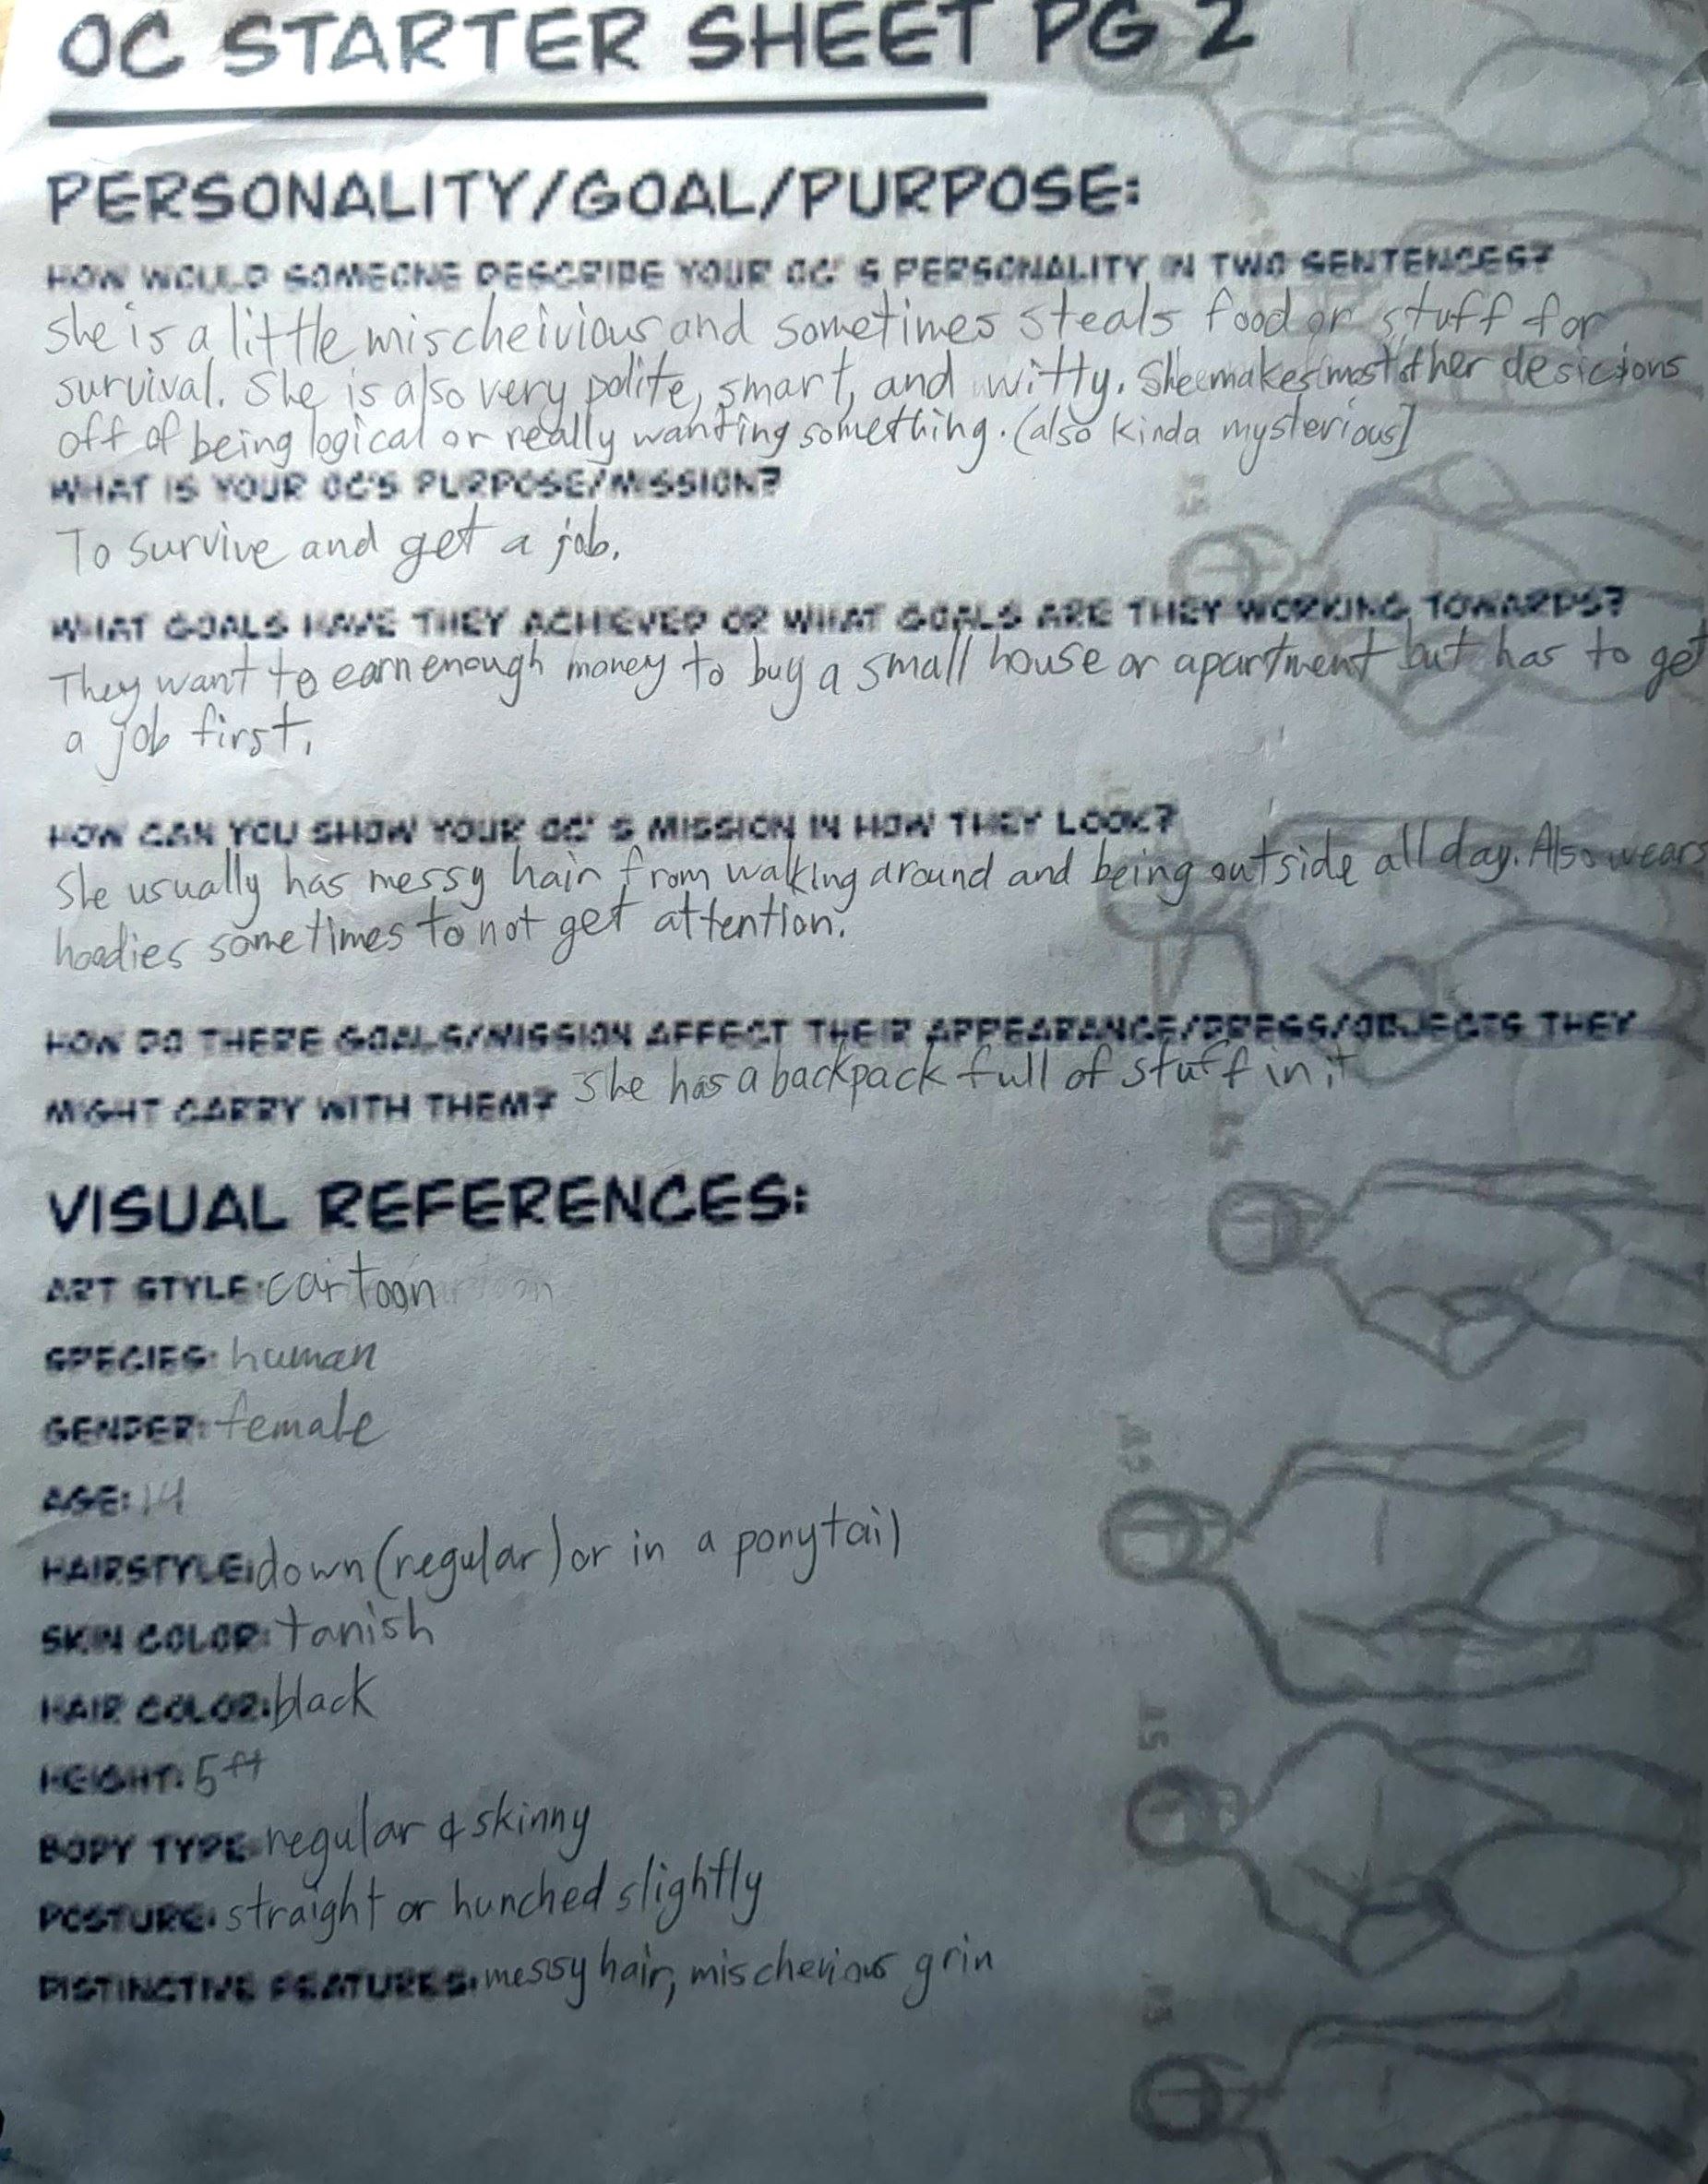 OC STARTER SHEET PG 2
PERSONALITY/GOAL/PURPOSE:
HOW WOULD SOMEONE DESCRIBE YOUR OC'S PERSONALITY IN TWO SENTENCES?
She is a little mischeivious and sometimes steals food or stuff for
survival. She is also very polite, smart, and witty. She makes most of her desicions
off of being logical or really wanting something. (also kinda mysterious)
WHAT IS YOUR OC'S PURPOSE/MISSION?
To survive and get a job.
WHAT GOALS HAVE THEY ACHIEVED OR WHAT GOALS ARE THEY WORKING TOWARDS?
They want to earn enough money to buy a small house or apartment but has to get
a job first.
HOW CAN YOU SHOW YOUR OC'S MISSION IN HOW THEY LOOK?
She usually has messy hair from walking around and being outside all day. Also wears
hoodies sometimes to not get attention.
HOW DO THERE GOALS/MISSION AFFECT THEIR APPEARANCE/DRESS/OBJECTS THEY
MIGHT CARRY WITH THEM? She has a backpack full of stuff in it
VISUAL REFERENCES:
ART STYLE: cartoon
SPECIES: human
GENDER: female
AGE: 14
HAIRSTYLE: down (regular) or in a ponytail
SKIN COLOR: tanish
HAIR COLOR: black
HEIGHT: 5ft
BODY TYPE: regular & skinny
POSTURE: straight or hunched slightly
DISTINCTIVE FEATURES: messy hair, mischevious grin